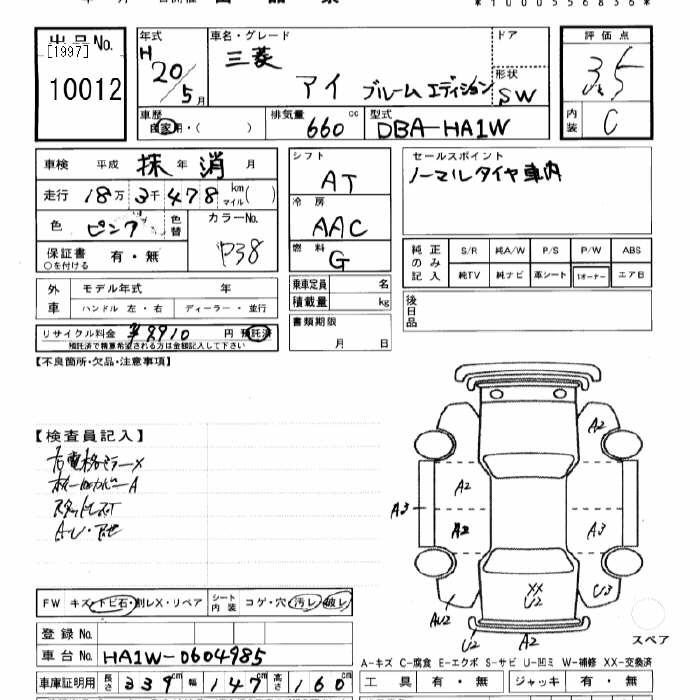 *1000556836*
出品No.
[1997]
10012
年式 H 20/5月
車名・グレード 三菱 アイ ブルーム エディション
ドア
形状 SW
評価点 3.5
内装 C
車歴 自家用・( )
排気量 660 cc
型式 DBA-HA1W
車検 平成 抹 年 消 月
走行 18万 3千 478 km マイル( )
色 ピンク 色替
カラーNo. P38
保証書 有・無
○を付ける
シフト AT
冷房 AAC
燃料 G
セールスポイント
ノーマルタイヤ車内
純正のみ記入 S/R 純A/W P/S P/W ABS
純TV 純ナビ 革シート 1オーナー エアB
外車 モデル年式 年
ハンドル 左・右 ディーラー・並行
乗車定員 名
積載量 kg
後日品
リサイクル料金 ¥9910 円 預託済
預託済で精算希望される方は金額記入して下さい
書類期限 月 日
【不良箇所・欠品・注意事項】
【検査員記入】
右電格ミラーX
A2
A2
A2
A3
A3
XX
U2
U3
AU2
U2
A2
スペア
FW キズ・トビ石・割レX・リペア シート内装 コゲ・穴・汚レ・破レ
登録No.
車台No. HA1W-0604985
A-キズ C-腐食 E-エクボ S-サビ U-凹ミ W-補修 XX-交換済
車庫証明用 長さ 339cm 幅 147cm 高さ 160cm
工具 有・無 ジャッキ 有・無